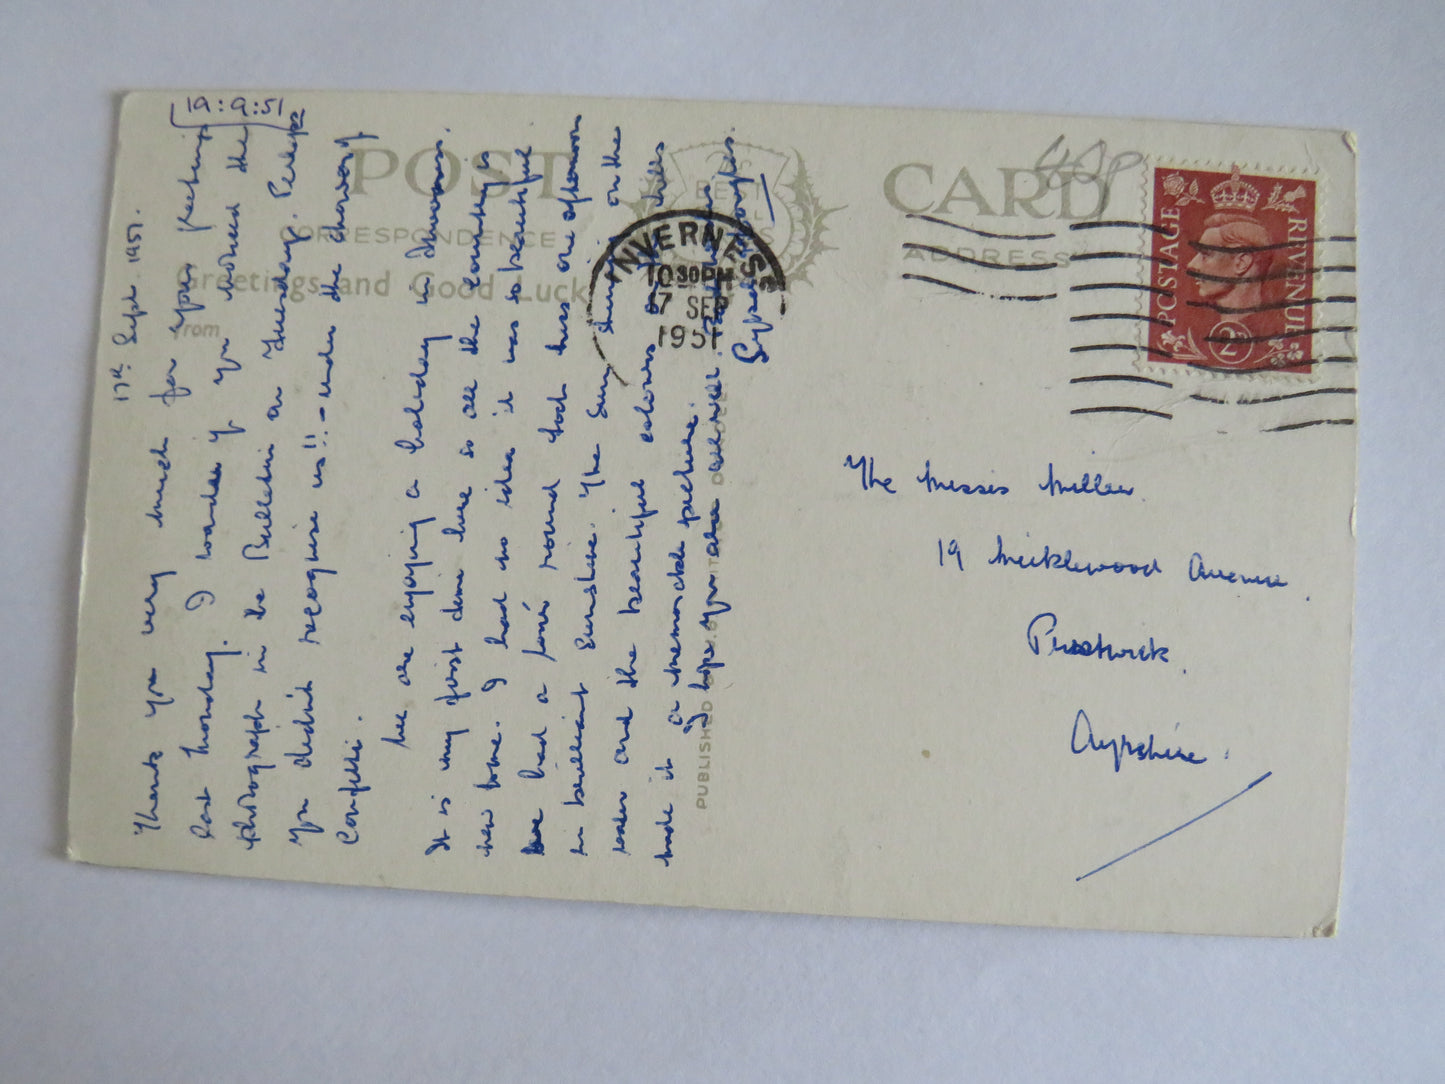 POST CARD
CORRESPONDENCE
ADDRESS
Greetings and Good Luck
from
INVERNESS
10 30PM
17 SEP
1951
POSTAGE REVENUE
2D
468
19:9:51
17th Sept. 1951.
Thank you very much for your greetings
last Monday. I wonder if you noticed the
photograph in the Bulletin on Tuesday. Perhaps
you didn't recognise us!! - under the shower of
Confetti.
We are enjoying a holiday in Inverness.
It is my first time here so all the country is
new to me. I had no idea it was so beautiful
We had a tour round Loch Ness one afternoon
in brilliant sunshine. The sun shining on the
water and the beautiful colours of the hills
made it a memorable picture.
I hope you are all well.
Sybil Douglas.
The Misses Miller.
19 Micklewood Avenue.
Prestwick.
Ayrshire.